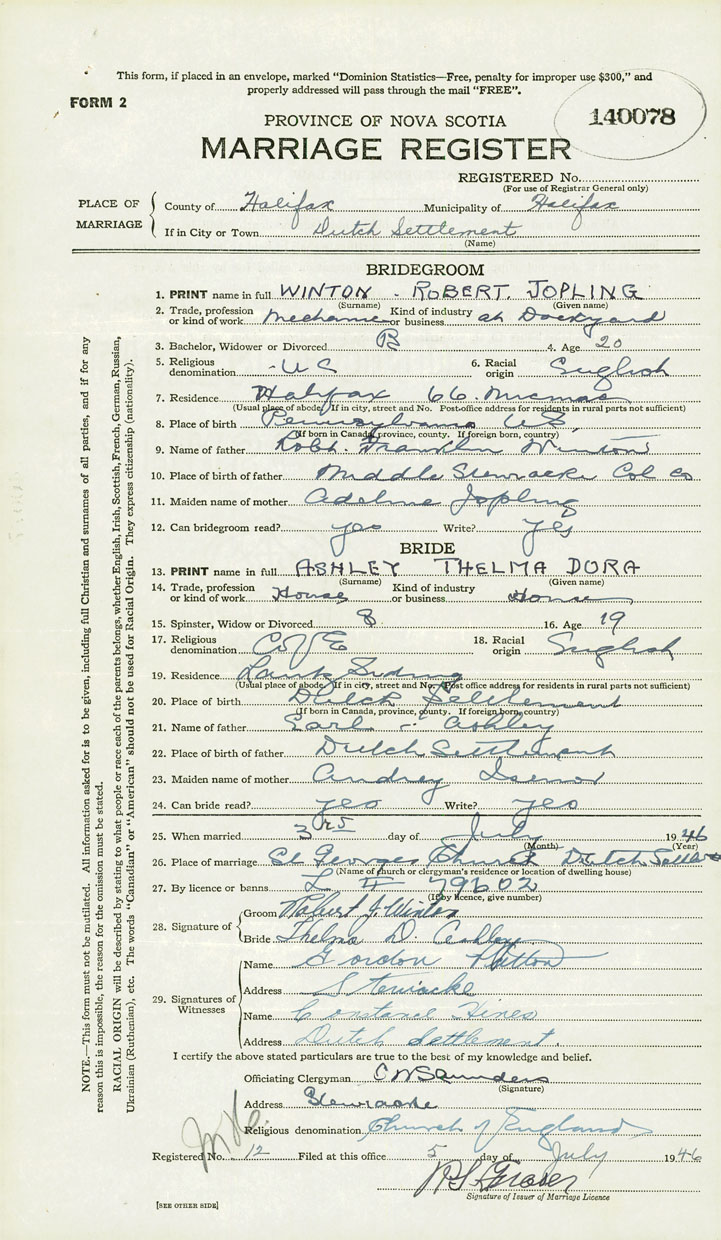 This form, if placed in an envelope, marked "Dominion Statistics—Free, penalty for improper use $300," and
properly addressed will pass through the mail "FREE".
FORM 2
140078
PROVINCE OF NOVA SCOTIA
MARRIAGE REGISTER
REGISTERED No.
(For use of Registrar General only)
PLACE OF MARRIAGE
County of Halifax Municipality of Halifax
If in City or Town Dutch Settlement
(Name)
BRIDEGROOM
1. PRINT name in full WINTON - ROBERT JOPLING
(Surname) (Given name)
2. Trade, profession or kind of work Mechanic Kind of industry or business at Dockyard
3. Bachelor, Widower or Divorced B 4. Age 20
5. Religious denomination U C 6. Racial origin English
7. Residence Halifax 66 Micmac
(Usual place of abode. If in city, street and No. Post-office address for residents in rural parts not sufficient)
8. Place of birth Pennsylvania U.S.
(If born in Canada, province, county. If foreign born, country)
9. Name of father Robt. Franklin Winton
10. Place of birth of father Middle Stewiacke Col Co
11. Maiden name of mother Adeline Jopling
12. Can bridegroom read? yes Write? yes
BRIDE
13. PRINT name in full ASHLEY THELMA DORA
(Surname) (Given name)
14. Trade, profession or kind of work House Kind of industry or business Home
15. Spinster, Widow or Divorced S 16. Age 19
17. Religious denomination C of E 18. Racial origin English
19. Residence
(Usual place of abode. If in city, street and No. Post office address for residents in rural parts not sufficient)
20. Place of birth Dutch Settlement
(If born in Canada, province, county. If foreign born, country)
21. Name of father Earl Ashley
22. Place of birth of father Dutch Settlement
23. Maiden name of mother Audrey Isenor
24. Can bride read? yes Write? yes
25. When married 3rd day of July 1946
(Month) (Year)
26. Place of marriage St Georges Church Dutch Settle
(Name of church or clergyman's residence or location of dwelling house)
27. By licence or banns L 79602
(If by licence, give number)
28. Signature of
Groom Robert J. Winton
Bride Thelma D. Ashley
29. Signatures of Witnesses
Name Gordon
Address Stewiacke
Name Constance Hines
Address Dutch Settlement.
I certify the above stated particulars are true to the best of my knowledge and belief.
Officiating Clergyman C W Saunders
(Signature)
Address Stewiacke
Religious denomination Church of England
Registered No. 12 Filed at this office 5 day of July 1946
Signature of Issuer of Marriage Licence
[SEE OTHER SIDE]
NOTE.—This form must not be mutilated. All information asked for is to be given, including full Christian and surnames of all parties, and if for any
reason this is impossible, the reason for the omission must be stated.
RACIAL ORIGIN will be described by stating to what people or race each of the parents belongs, whether English, Irish, Scottish, French, German, Russian,
Ukrainian (Ruthenian), etc. The words "Canadian" or "American" should not be used for Racial Origin. They express citizenship (nationality).